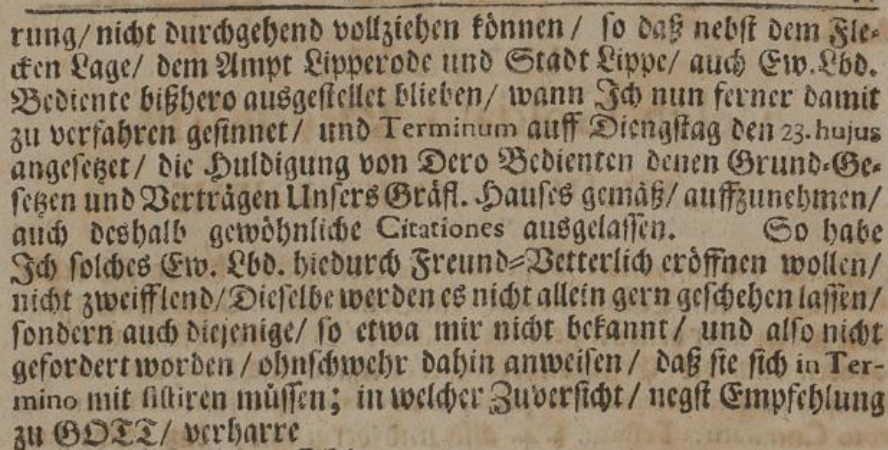 rung/ nicht durchgehend vollziehen können/ so daß nebst dem Fle-
cken Lage/ dem Ampt Lipperode und Stadt Lippe/ auch Ew. Lbd.
Bediente bißhero ausgestellet blieben/ wann Ich nun ferner damit
zu verfahren gesinnet/ und Terminum auff Diengstag den 23. hujus
angesetzet/ die Huldigung von Dero Bedienten denen Grund-Ge-
setzen und Verträgen Unsers Gräfl. Hauses gemäß/ auffzunehmen/
auch deshalb gewöhnliche Citationes ausgelassen. So habe
Ich solches Ew. Lbd. hiedurch Freund-Vetterlich eröffnen wollen/
nicht zweifflend/ Dieselbe werden es nicht allein gern geschehen lassen/
sondern auch diejenige/ so etwa mir nicht bekannt/ und also nicht
gefordert worden/ ohnschwehr dahin anweisen/ daß sie sich in Ter-
mino mit sistiren müssen; in welcher Zuversicht/ negst Empfehlung
zu GOTT/ verharre